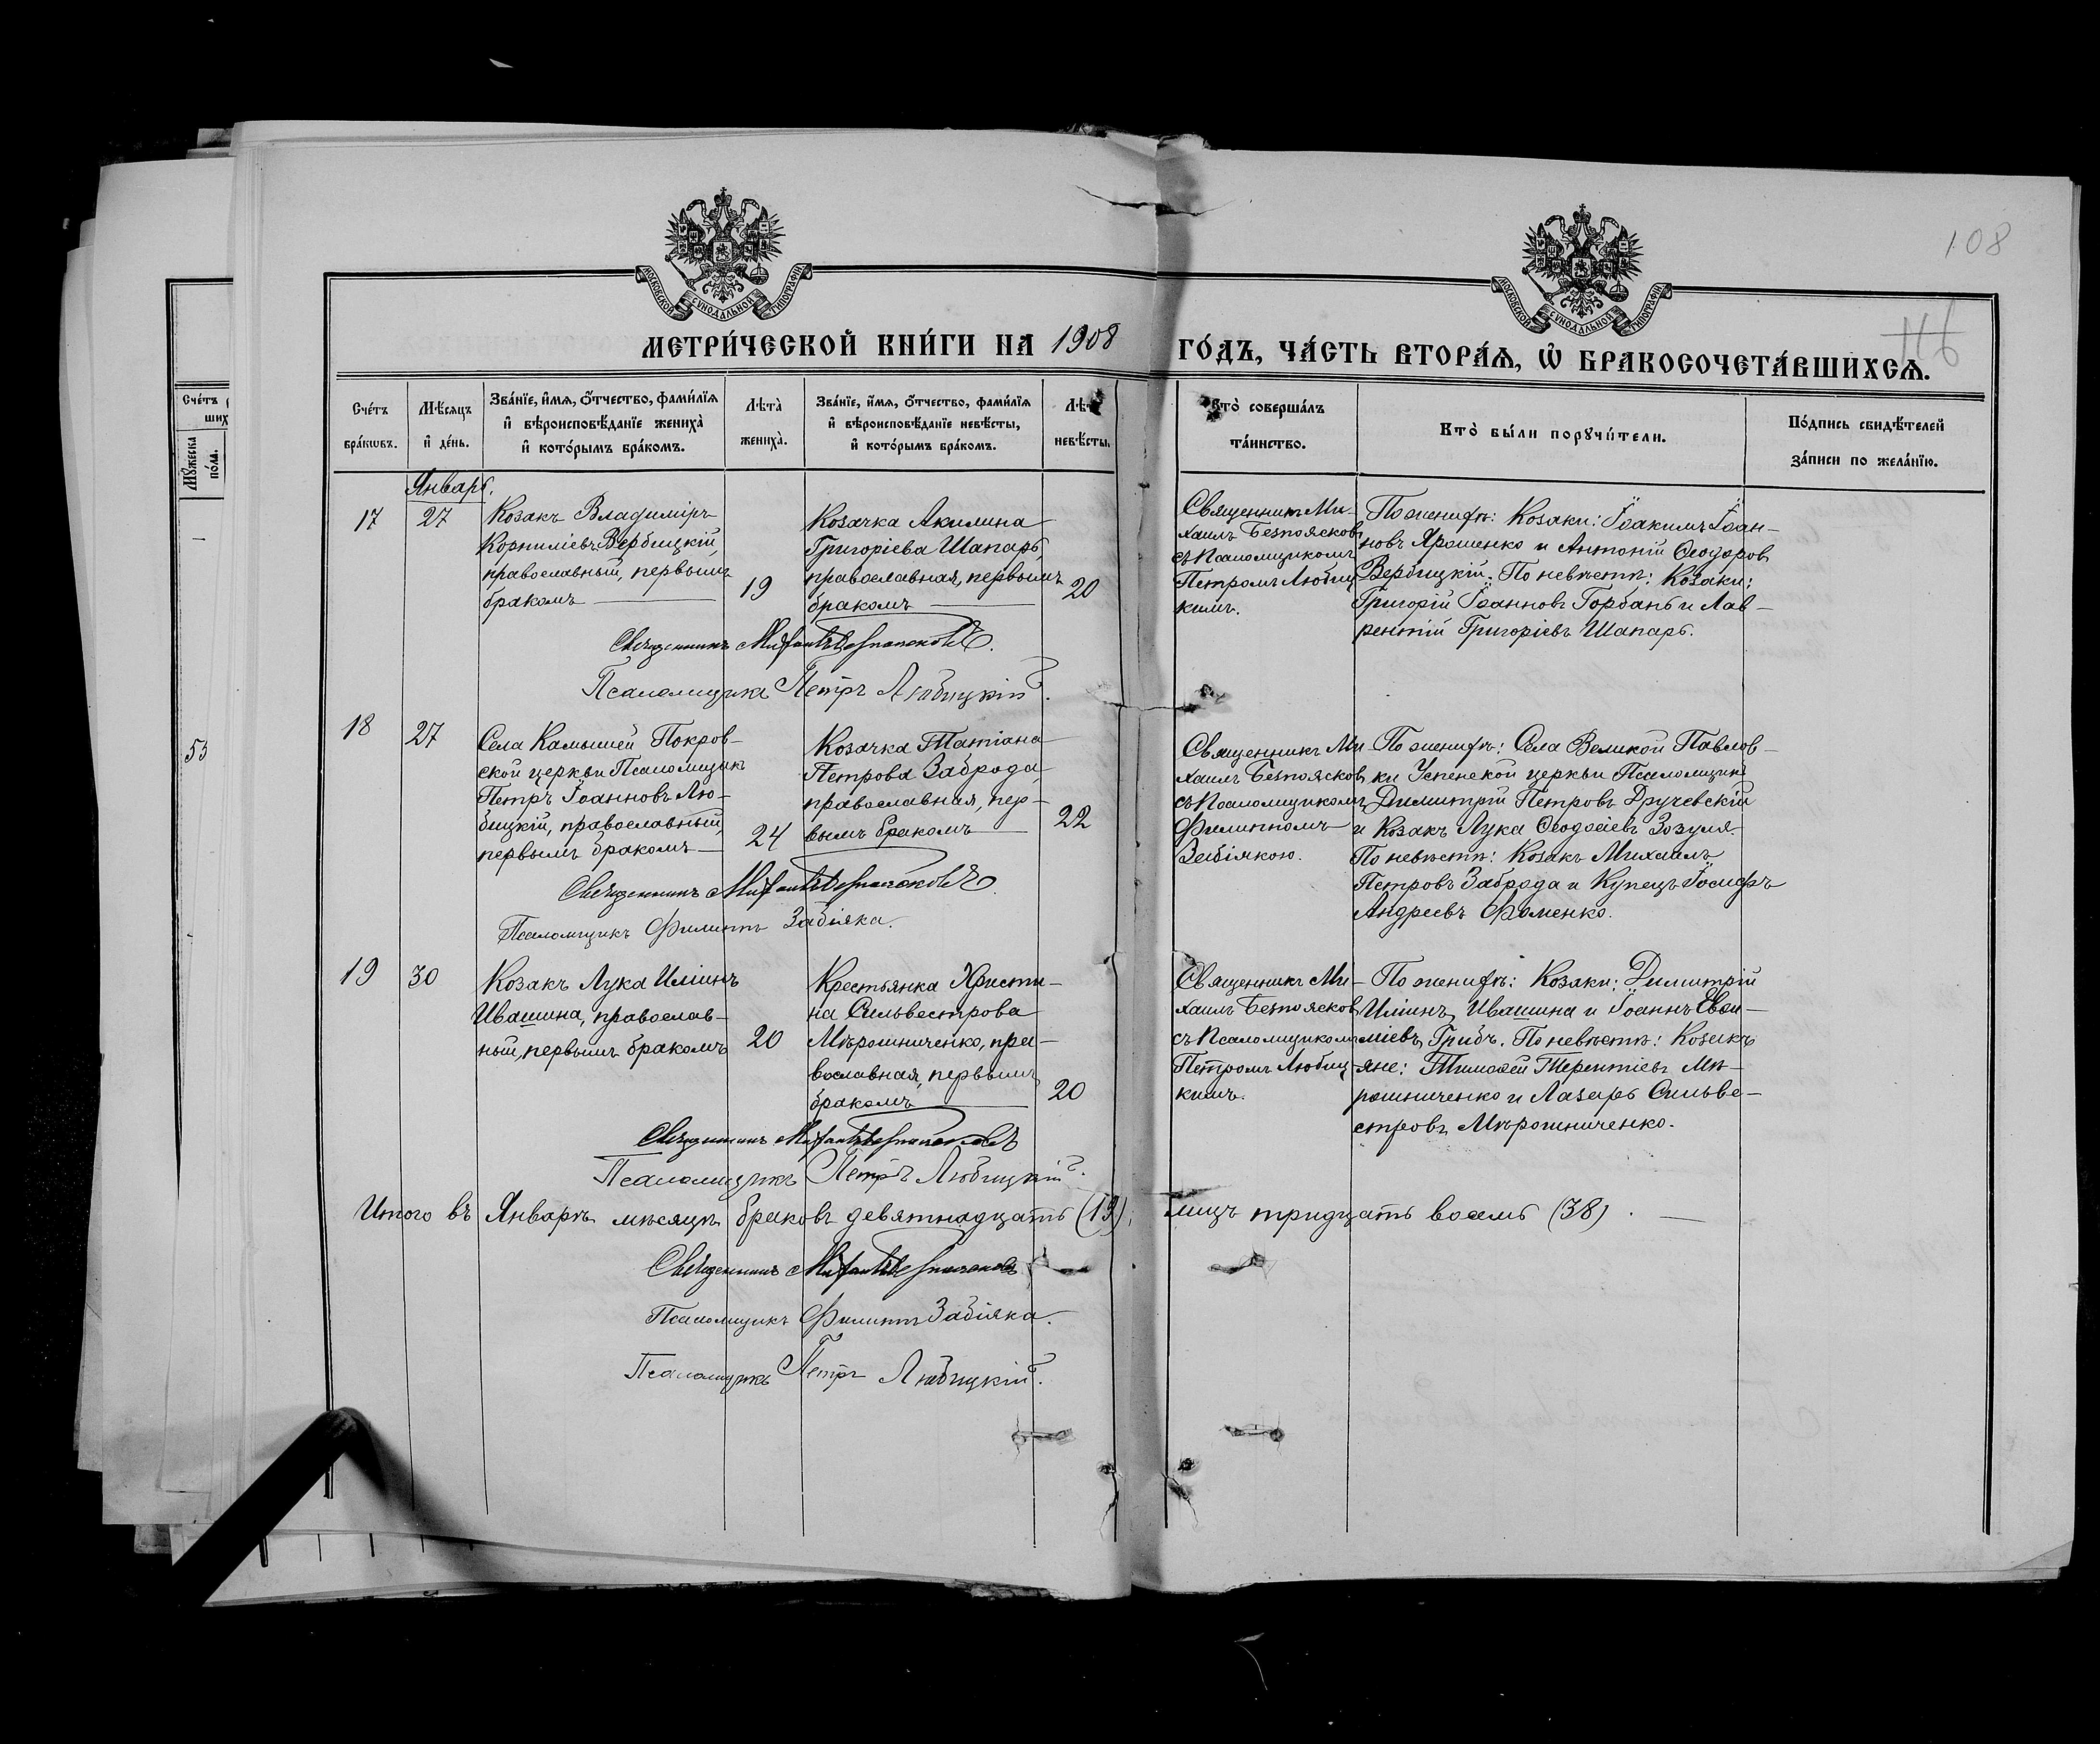 108
116
МОСКОВСКОЙ СѴНОДАЛЬНОЙ ТИПОГРАФІИ
МОСКОВСКОЙ СѴНОДАЛЬНОЙ ТИПОГРАФІИ
МЕТРИ́ЧЕСКОЙ КНИ́ГИ НА 1908 ГО́ДЪ, ЧА́СТЬ ВТОРА́Ѧ, Ѡ҆ БРАКОСОЧЕТА́ВШИХСѦ.
Сче́тъ
бра́кѡвъ.
Мѣ́сяцъ
и҆ де́нь.
Зва́нїе, и҆́мя, ѻ҆́тчество, фами́лїя
и҆ вѣроисповѣ́данїе жениха̀
и҆ кото́рымъ бра́комъ.
Лѣта̀
жениха̀.
Зва́нїе, и҆́мя, ѻ҆́тчество, фами́лїя
и҆ вѣроисповѣ́данїе невѣ́сты,
и҆ кото́рымъ бра́комъ.
Лѣт
невѣ́сты.
Кто̀ соверша́лъ
та́инство.
Кто̀ бы́ли порꙋчи́тели.
По́дпись свидѣ́телей
за́писи по жела́нїю.
Счѐтъ
ших
Мꙋ́жеска
по́ла.
55
Январь.
17
27
Козакъ Владиміръ
Корниліевъ Вербицкій,
православный, первымъ
бракомъ
19
Козачка Акилина
Григоріева Шапарь
православная, первымъ
бракомъ
20
Священникъ Ми-
хаилъ Безпоясковъ
съ Псаломщикомъ
Петромъ Любиц
кимъ.
По женихѣ: Козаки: Іоакимъ Іоан-
новъ Ярошенко и Антоній Ѳеодоровъ
Вербицкій. По невѣстѣ: Козаки:
Григорій Іоанновъ Горбань и Лав-
рентій Григоріевъ Шапарь.
Священникъ Михаилъ Безпоясковъ.
Псаломщикъ Петръ Любицкій.
18
27
Села Камышей Покров-
ской церкви Псаломщикъ
Петръ Іоанновъ Лю-
бицкій, православный,
первымъ бракомъ
24
Козачка Татіана
Петрова Заброда
православная, пер-
вымъ бракомъ
22
Священникъ Ми-
хаилъ Безпоясковъ
съ Псаломщикомъ
Филиппомъ
Забіякою.
По женихѣ: Села Великой Павлов-
ки Успенской церкви Псаломщикъ
Димитрій Петровъ Дручевскій
и Козакъ Лука Ѳеодосіевъ Зозуля.
По невѣстѣ: Козакъ Михаилъ
Петровъ Заброда и Купецъ Іосифъ
Андреевъ Фоменко.
Священникъ Михаилъ Безпоясковъ.
Псаломщикъ Филиппъ Забіяка.
19
30
Козакъ Лука Иліинъ
Ивашина, православ-
ный, первымъ бракомъ
20
Крестьянка Христи-
на Сильвестрова
Мѣрошниченко, пра-
вославная, первымъ
бракомъ
20
Священникъ Ми-
хаилъ Безпоясковъ
съ Псаломщикомъ
Петромъ Любиц
кимъ.
По женихѣ: Козаки: Димитрій
Иліинъ Ивашина и Іоаннъ Евѳи-
міевъ Грибъ. По невѣстѣ: Козакъ
яне: Тимоѳей Терентіевъ Мѣ-
рошниченко и Лазарь Сильве-
стровъ Мѣрошниченко.
Священникъ Михаилъ Безпоясковъ
Псаломщикъ Петръ Любицкій.
Итого въ Январѣ мѣсяцѣ браковъ девятнадцать (19), лицъ тридцать восемь (38).
Священникъ Михаилъ Безпоясковъ
Псаломщикъ Филиппъ Забіяка.
Псаломщикъ Петръ Любицкій.